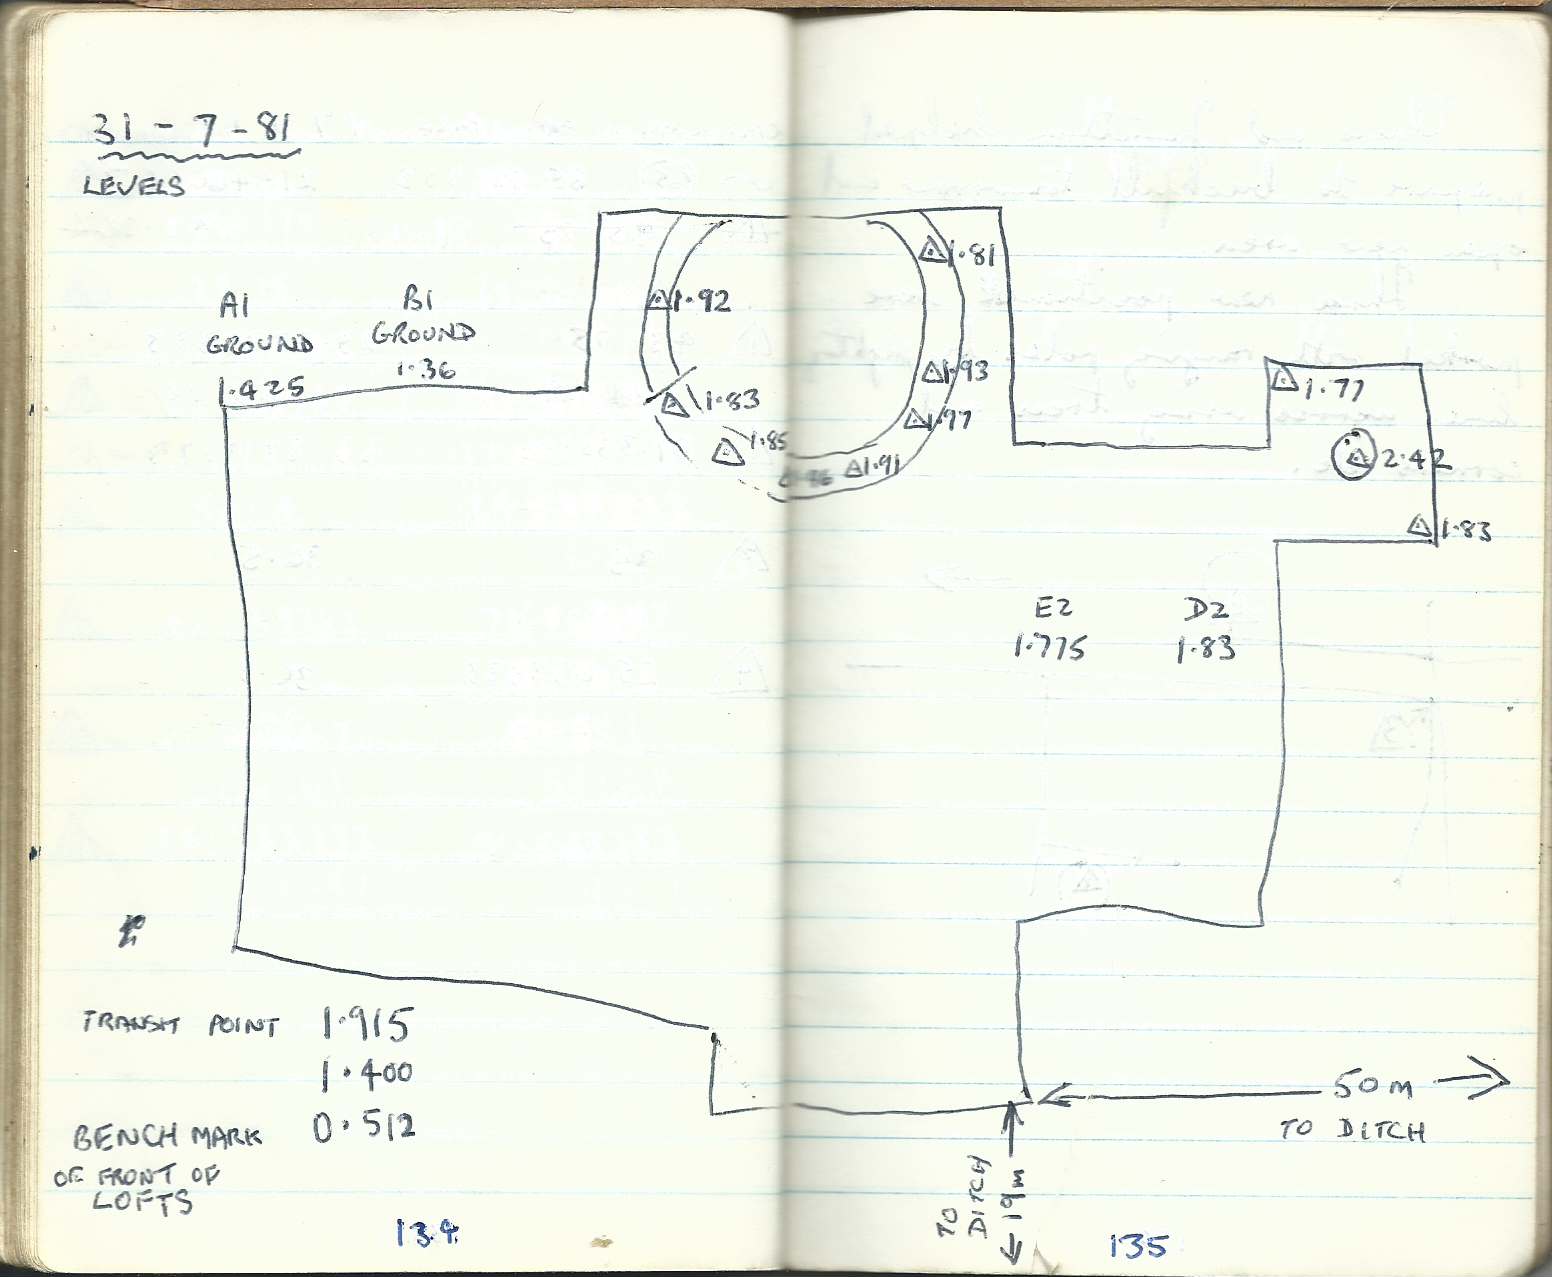 31-7-81
LEVELS
A1
GROUND
1.425
B1
GROUND
1.36
1.92
1.81
1.83
1.85
1.93
1.97
1.86
1.91
1.77
2.42
1.83
E2
1.775
D2
1.83
TRANSIT POINT 1.915
1.400
BENCH MARK 0.512
OF FRONT OF
LOFTS
50m
TO DITCH
TO
DITCH
19m
134
135